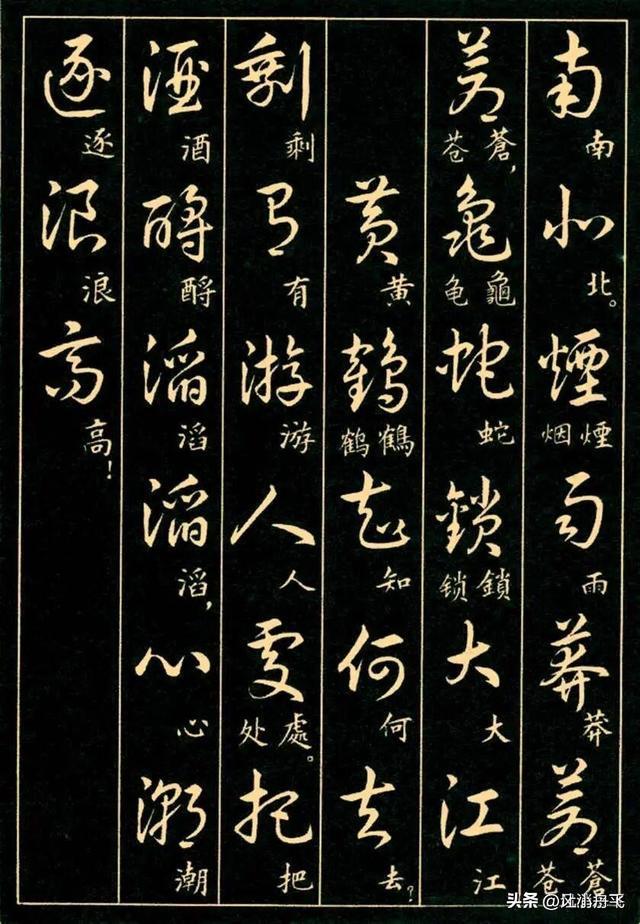 南北煙雨莽蒼
南北。煙烟雨莽蒼苍
蒼龜蛇鎖大江
蒼苍,龜龟蛇鎖锁大江
黄鶴知何去
黄鶴鹤知何去?
剩有游人處把
剩有游人處处。把
酒酹滔滔心潮
酒酹滔滔,心潮
逐浪高
逐浪高!
头条